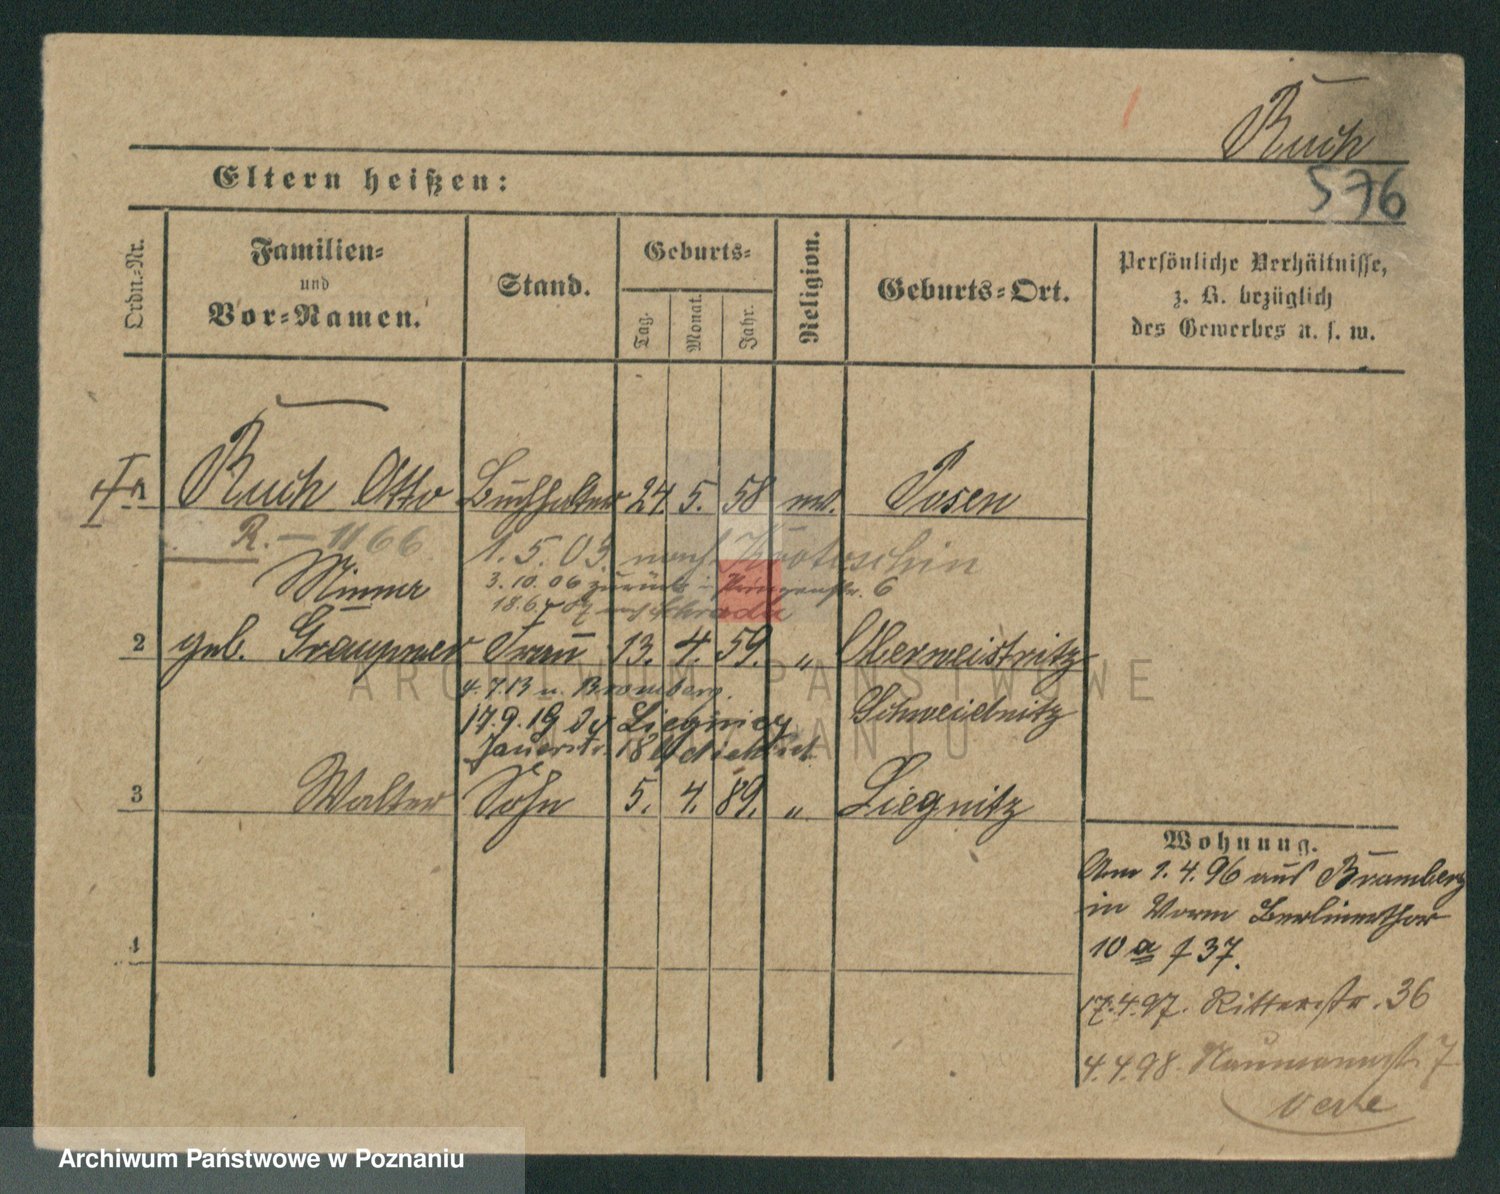 Ruch
576
Eltern heißen:
Ordn.-Nr.
Familien-
und
Vor-Namen.
Stand.
Geburts-
Tag.
Monat.
Jahr.
Religion.
Geburts-Ort.
Persönliche Verhältnisse,
z. B. bezüglich
des Gewerbes u. s. w.
Ruch Otto Buchhalter 24. 5. 58 ev. Posen
R. - 1166
1. 5. 03. nach Krotoschin
3. 10. 06 zurück Prinzenstr. 6
Minna
18.6. Schroda
2 geb. Graupner Frau 13. 4. 59. " Oberweistritz
4. 7. 13 n. Bromberg.
Schweidnitz
17. 9. 19 Liegnitz
Jauerstr.
3 Walter Sohn 5. 4. 89. " Liegnitz
4
Wohnung.
Am 1. 4. 96 aus Bromberg
in Vorm Berlinerthor
10 a f 37.
17. 4. 97. Ritterstr. 36
4. 4. 98. Naumannstr. 7
verte
ARCHIWUM PAŃSTWOWE
W POZNANIU
Archiwum Państwowe w Poznaniu